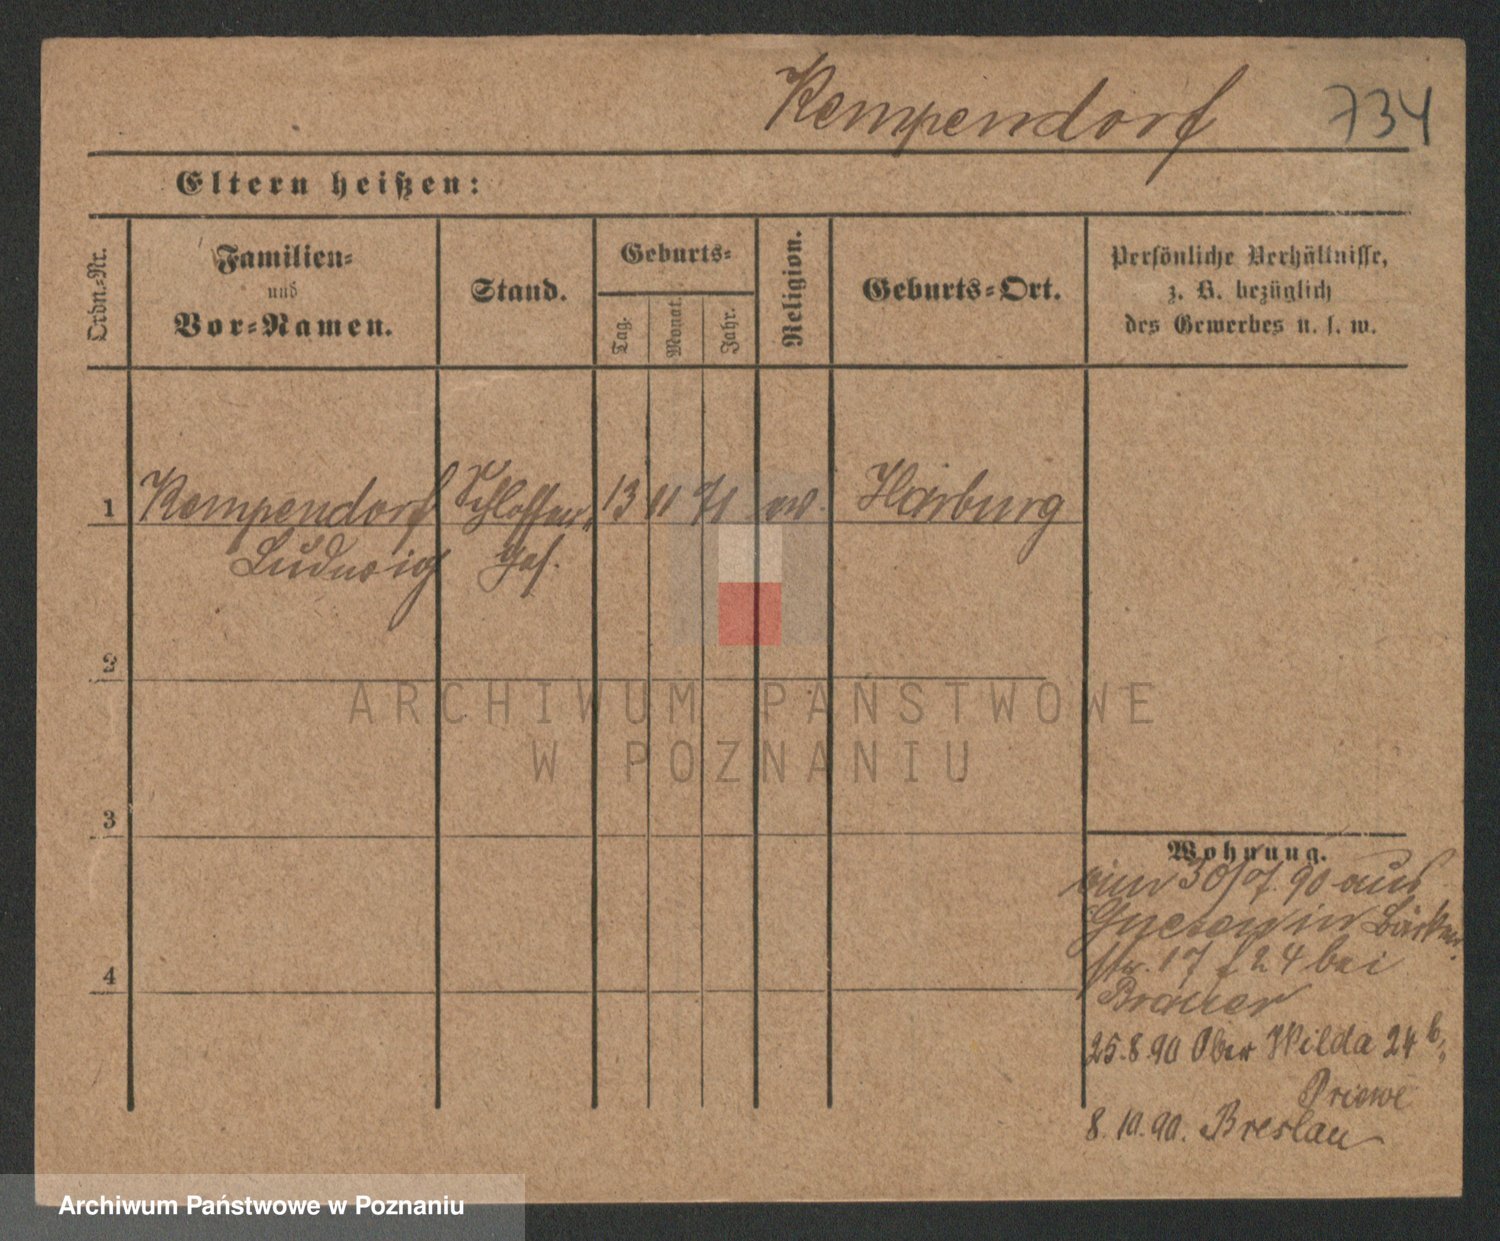 Kempendorf 734
Eltern heißen:
Ordn.-Nr.
Familien-
und
Vor-Namen.
Stand.
Geburts-
Tag.
Monat.
Jahr.
Religion.
Geburts-Ort.
Persönliche Verhältnisse,
z. B. bezüglich
des Gewerbes u. s. w.
1 Kempendorf Schlosser 13 11 71 ev. Harburg
Ludwig Ges.
2
ARCHIWUM PAŃSTWOWE
W POZNANIU
3
Wohnung.
30/7. 90 aus
Gnesen in Bäcker
str. 17 f 24 bei
Brauer
4
25.8.90 Ober Wilda 24 b,
Priewe
8.10.90. Breslau
Archiwum Państwowe w Poznaniu